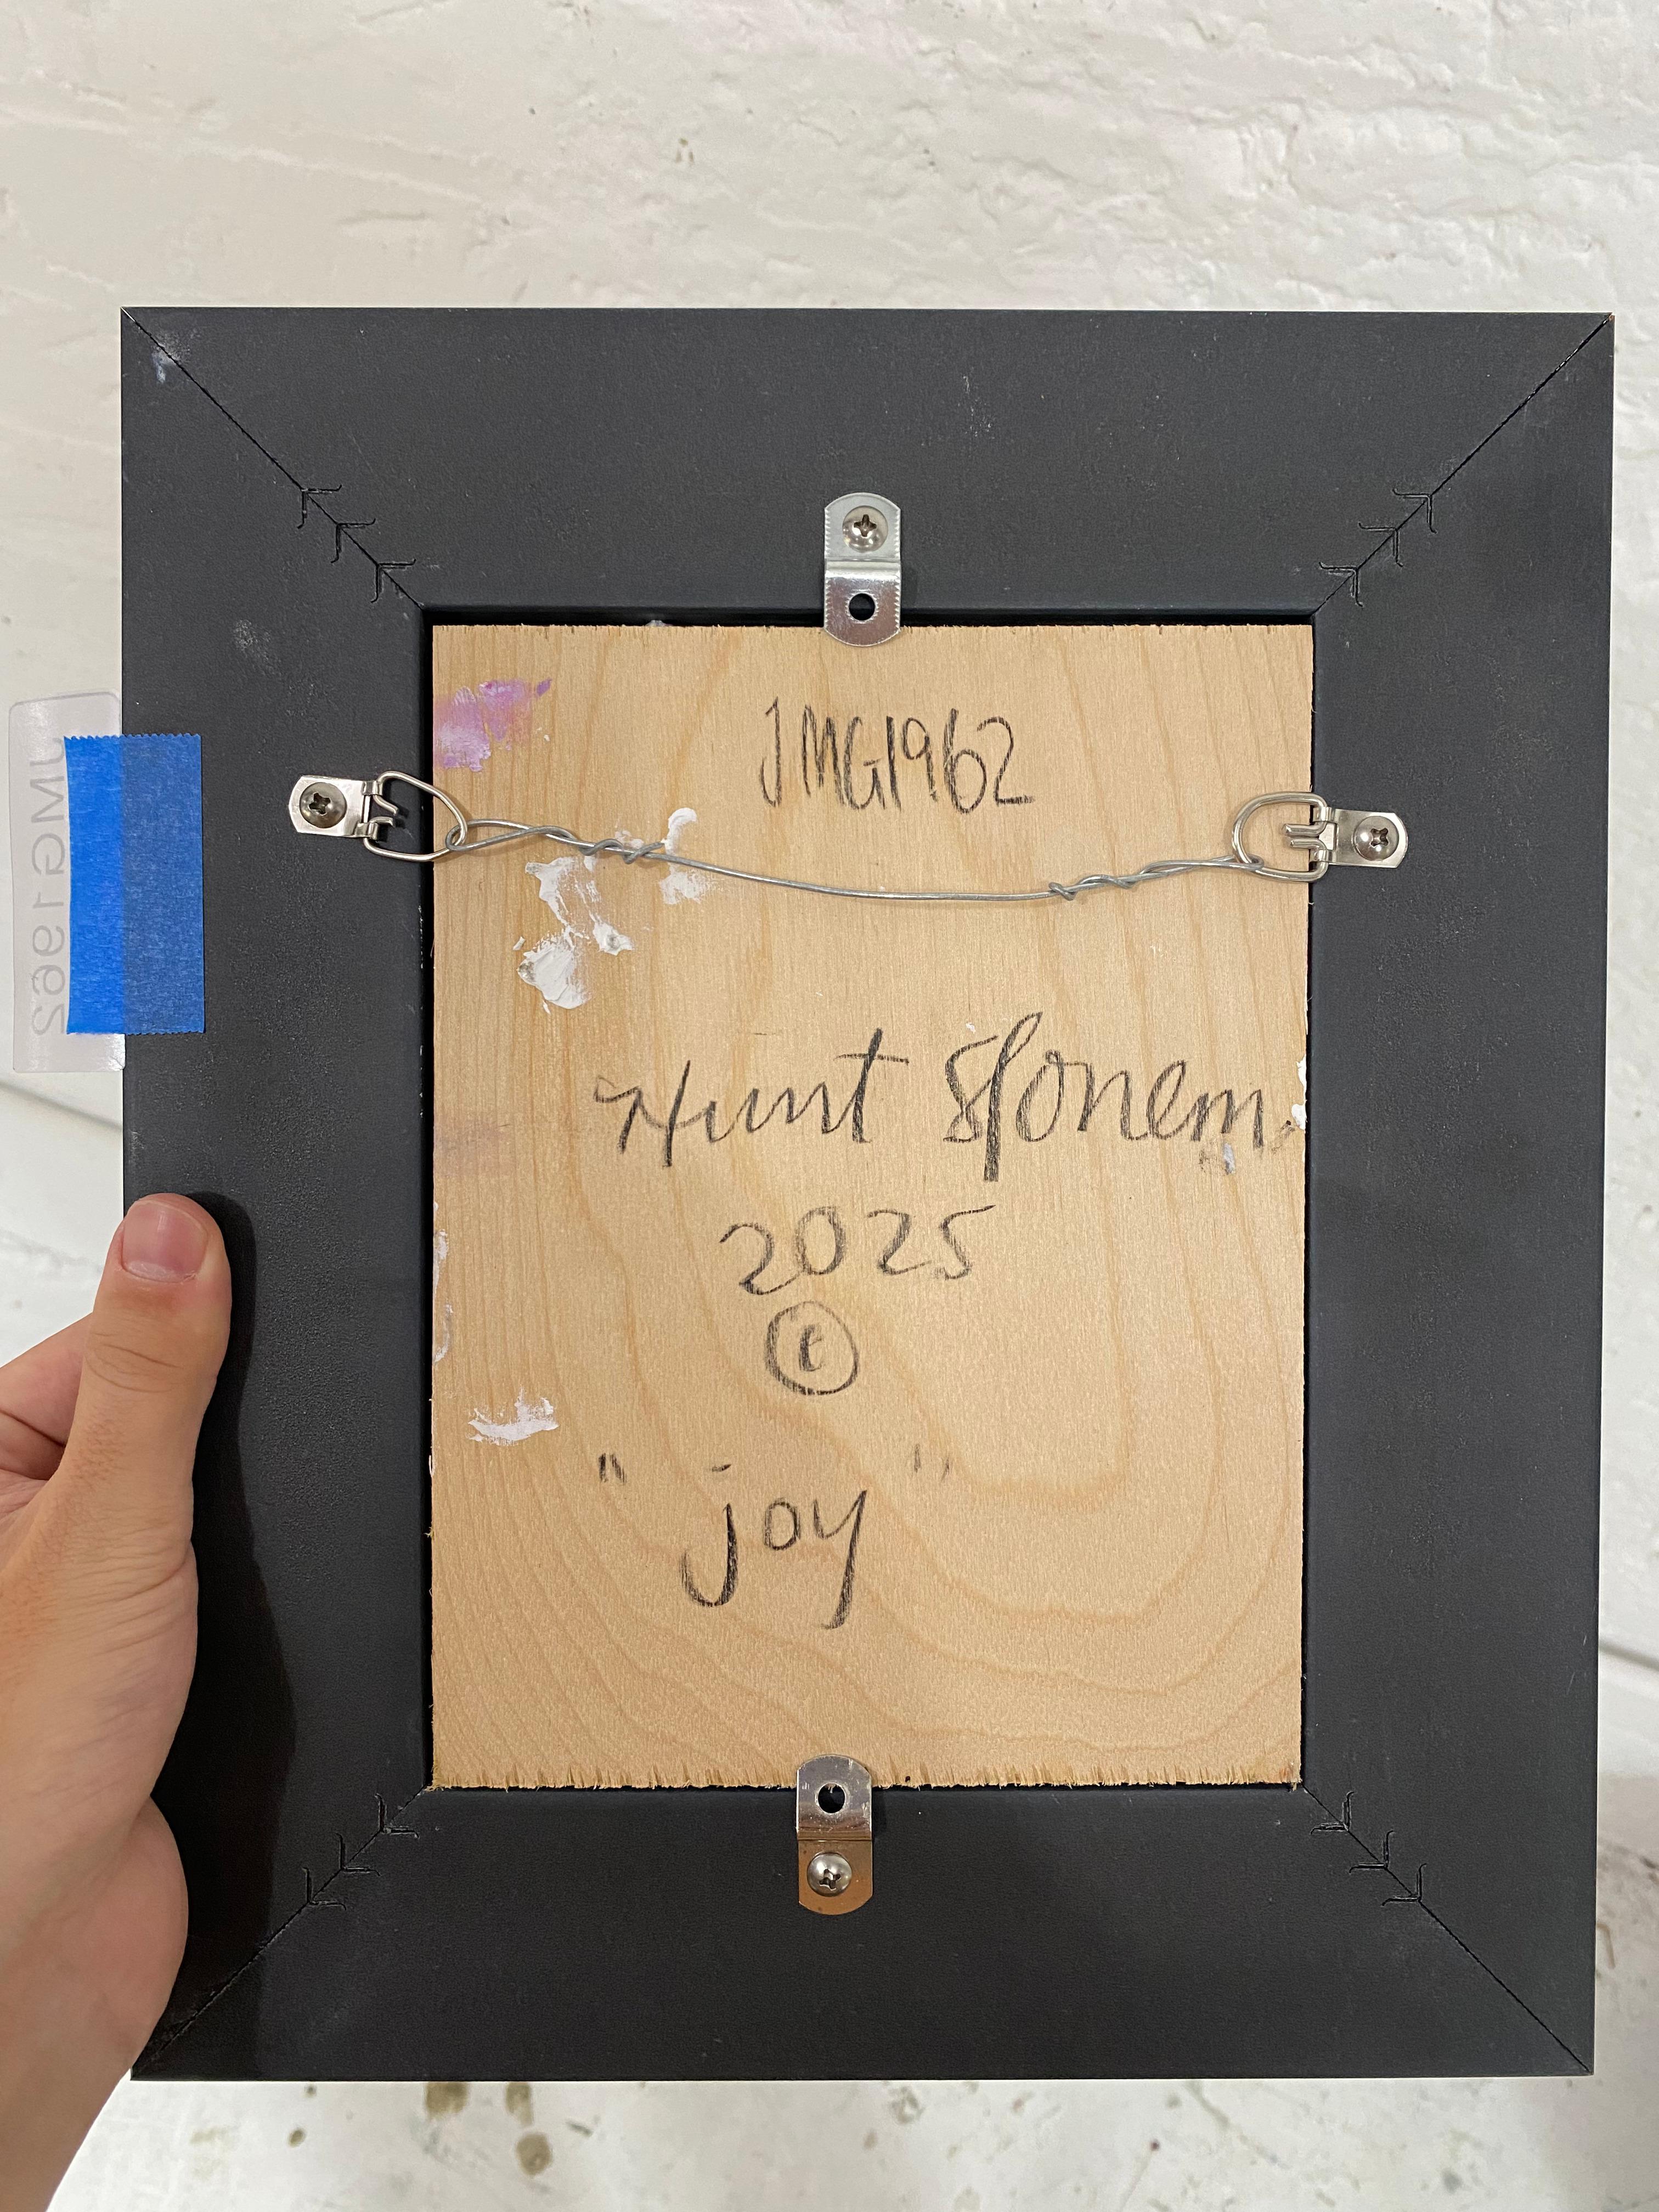 JMG1962
JMG1962
Hunt Slonem
2025
©
"joy"